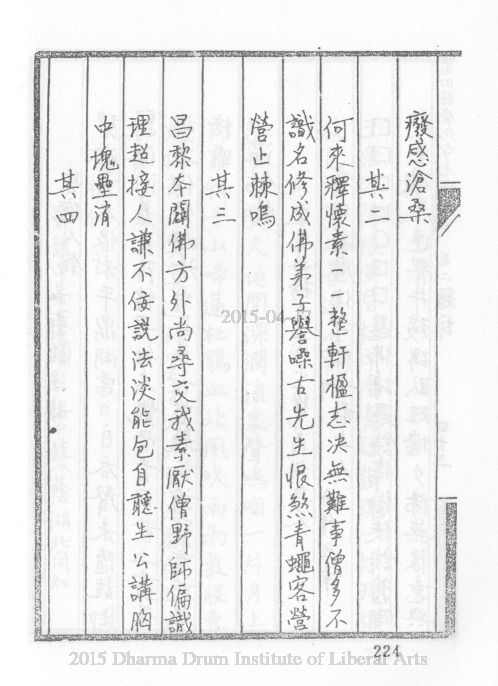 癈感滄桑
其二
何來釋懷素一一整軒楹志决無難事僧多不
識名修成佛弟子譽噪古先生恨煞青蠅客營
營止棘鳴
其三
昌黎本闢佛方外尚尋交我素厭僧野師偏識
理超接人謙不佞説法淡能包自聽生公講胸
中塊壘消
其四
224
2015 Dharma Drum Institute of Liberal Arts